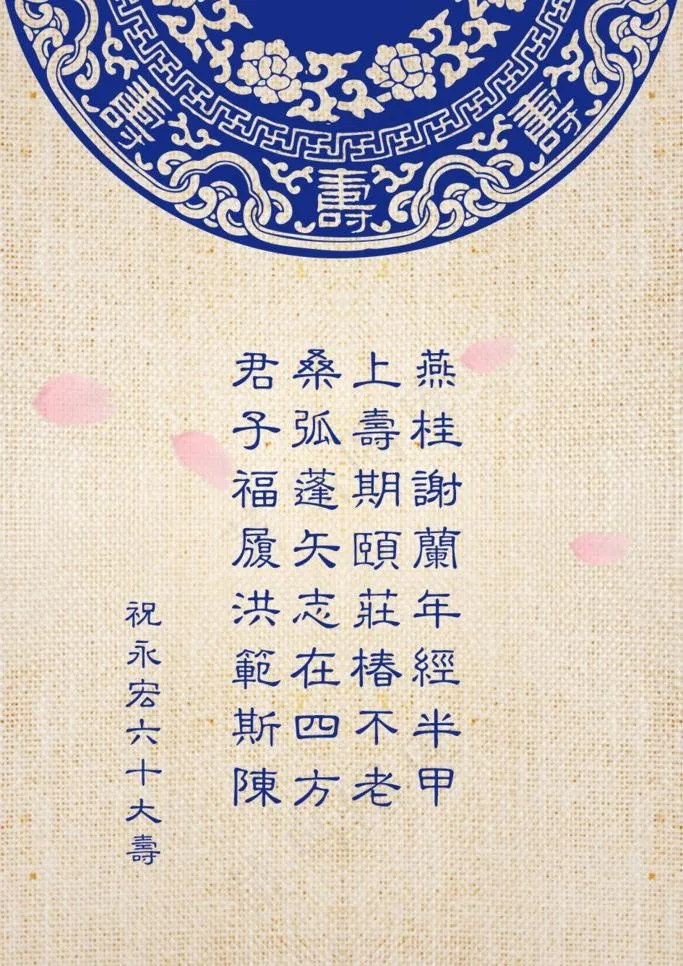 壽 壽 壽
燕桂謝蘭年經半甲
上壽期頤莊椿不老
桑弧蓬矢志在四方
君子福履洪範斯陳
祝永宏六十大壽